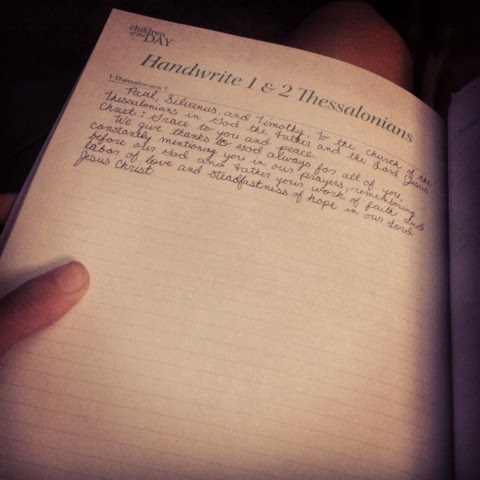 children
of the
DAY
Handwrite 1 & 2 Thessalonians
1 Thessalonians 1
Paul, Silvanus, and Timothy, To the church of the
Thessalonians in God the Father and the Lord Jesus
Christ: Grace to you and peace.
We give thanks to God always for all of you,
constantly mentioning you in our prayers, remembering
before our God and Father your work of faith and
labor of love and steadfastness of hope in our Lord
Jesus Christ